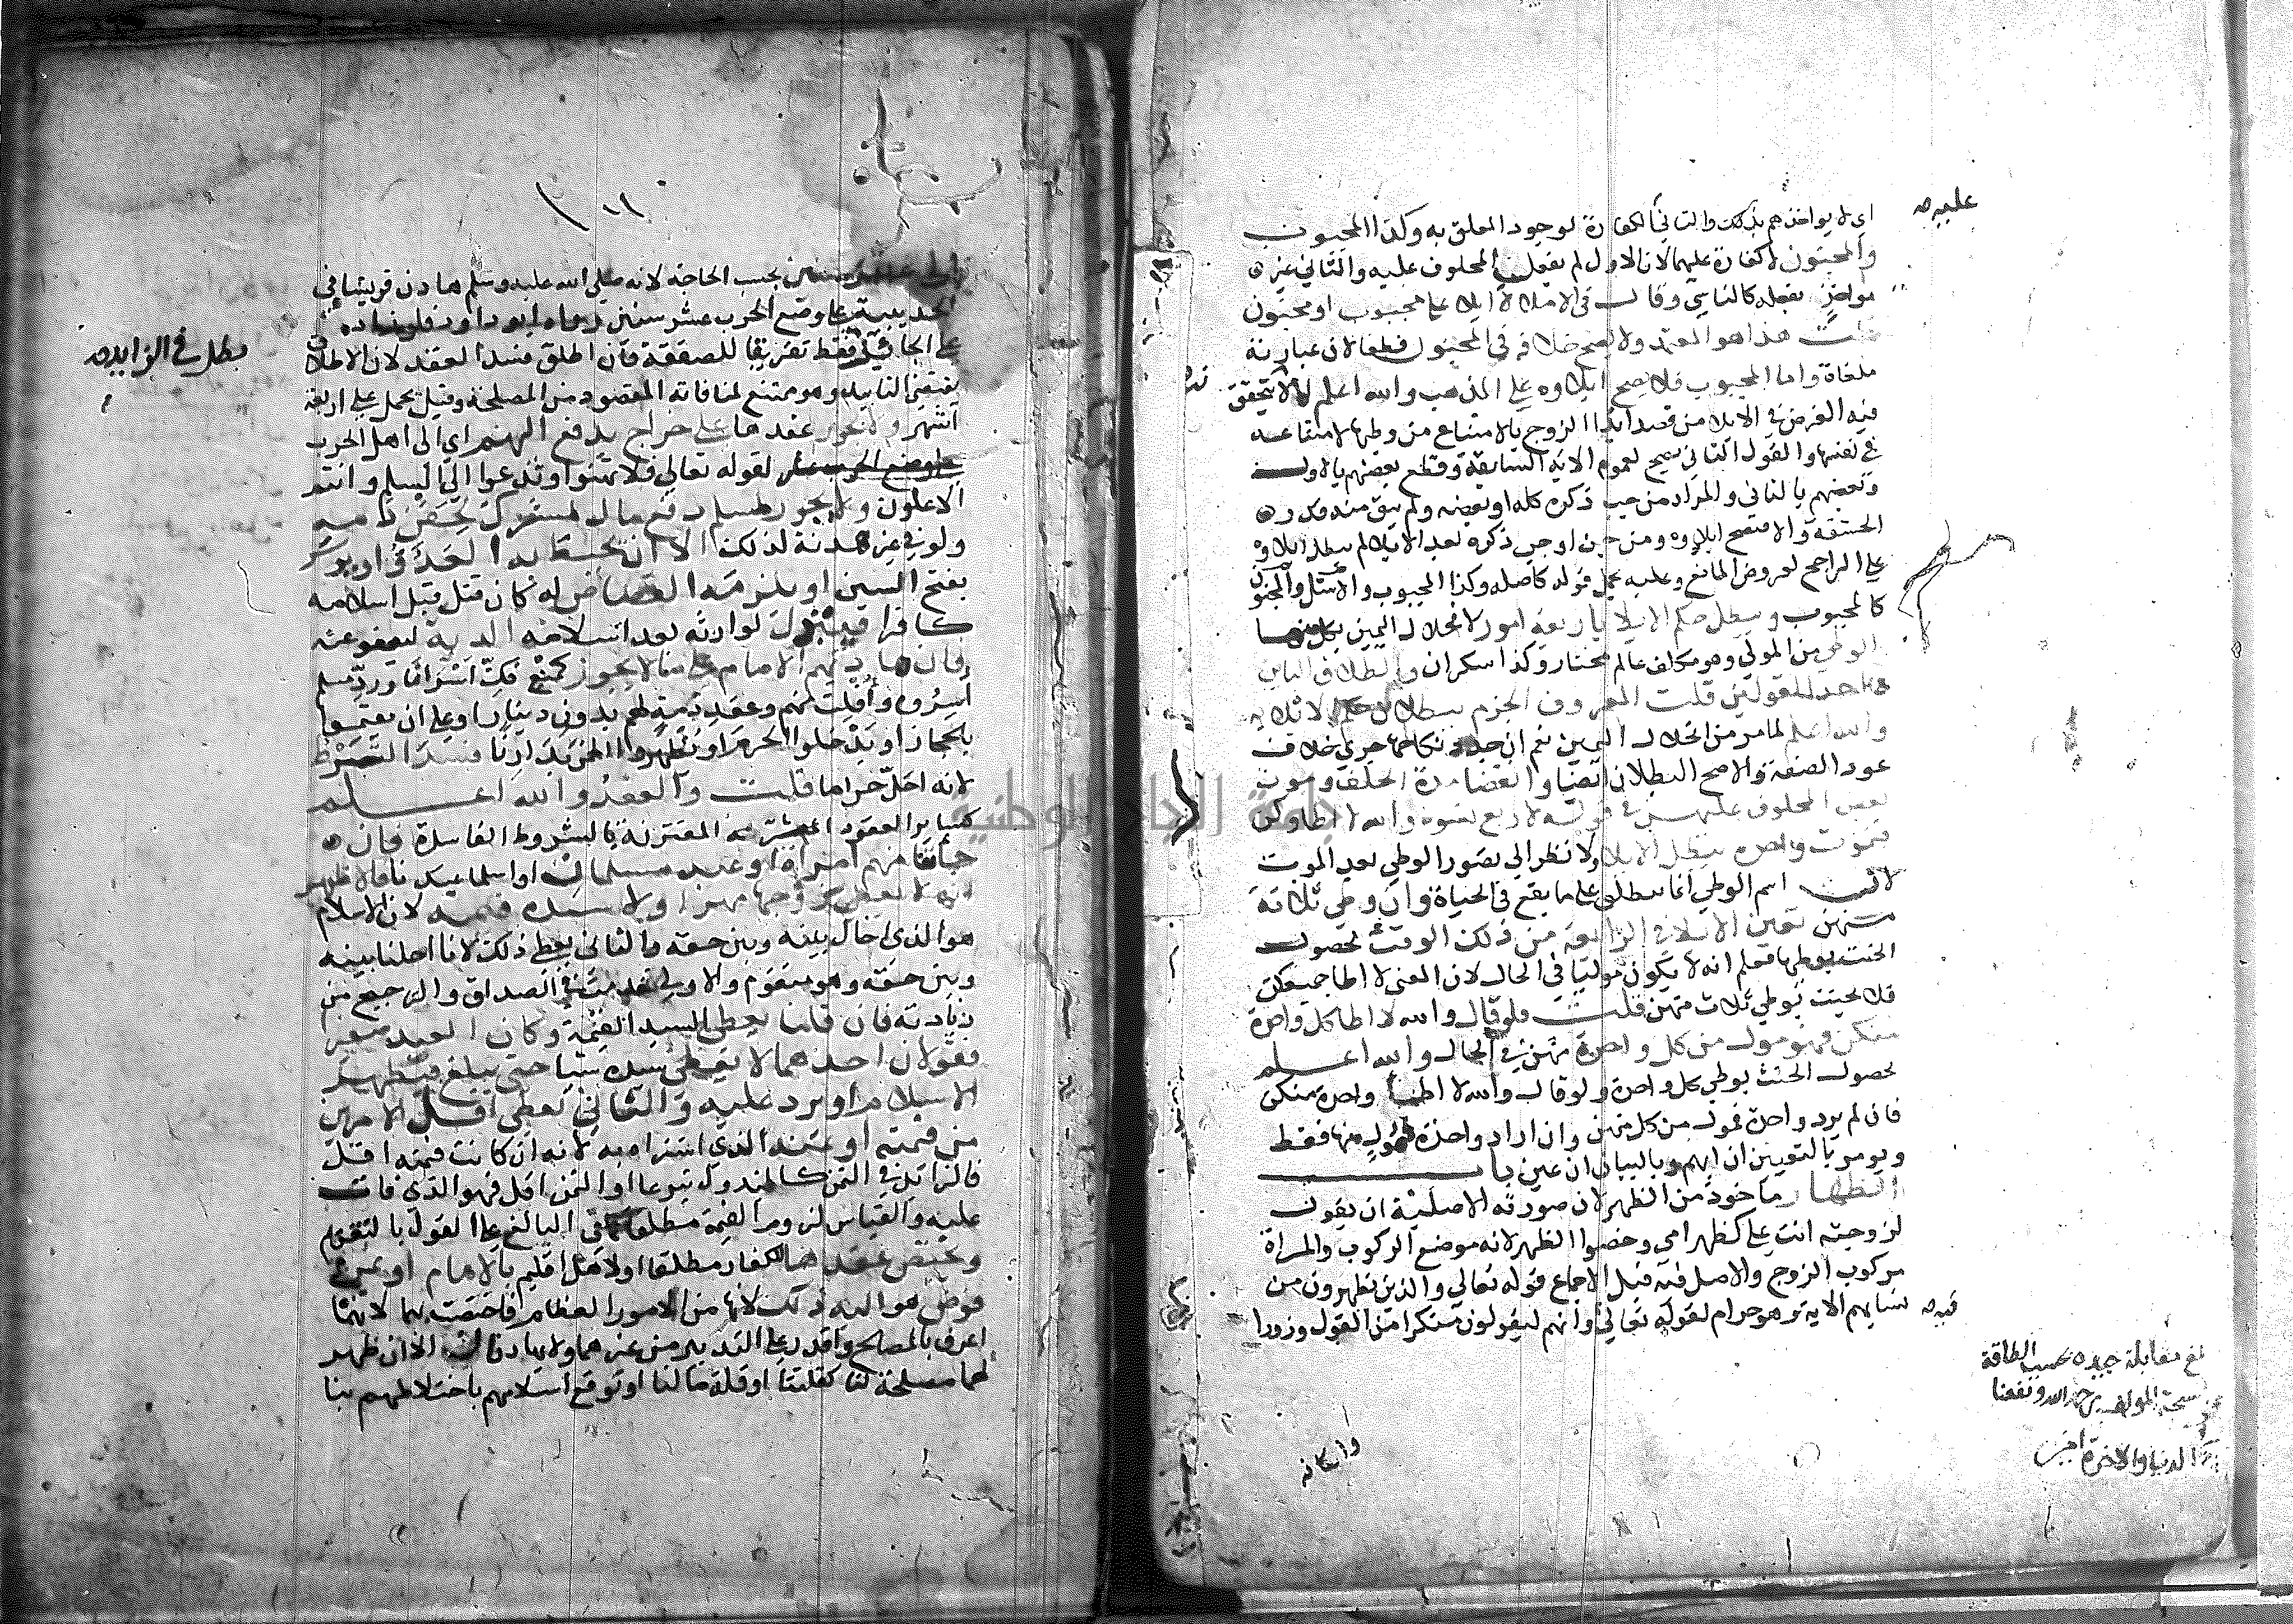 عليه صح
اي لا يواخذهم بذلك والثاني الكفارة لوجود المعلق به وكذا المجبوب
والمجنون لا كفارة عليهما لان الاول لم يفعل المحلوف عليه والثاني غير
مواخذ بفعله كالناسي وقال في الاملاء لا ايلاء على مجبوب او مجنون
قلت هذا هو المعتمد ولا يصح خلافه في المجنون قطعا لان عبارته
ملغاة واما المجبوب فلا يصح ايلاوه على المذهب والله اعلم لانه لا يتحقق
فيه الغرض في الايلا من قصد ايذا الزوج بالامتناع من وطيها لامتناعه
في نفسها والقول الثاني يصح لعموم الاية السابقة وقطع بعضهم بالاول
وبعضهم بالثاني والمراد من جب ذكره كله او بعضه ولم يبق منه قدر
الحشفة والا فيصح ايلاوه ومن جن او جب ذكره بعد الايلا لم يبطل ايلاوه
على الراجح لعروض المانع وعليه يحمل قوله كاصله وكذا المجبوب والاشل والمجنون
كالمجبوب ويبطل حكم الايلا باربعة امور لانحلال اليمين بكل منها
الوطي من المولي وهو مكلف عالم مختار وكذا سكران والطلاق الباين
في احد القولين قلت المعروف الجزم ببطلان حكم الايلا به
والله اعلم لما مر من انحلال اليمين نعم ان جدد نكاحها جرى خلاف
عود الصفة والاصح البطلان ايضا وانقضا مدة الحلف وموت
بعض المحلوف عليهن في قوله لاربع نسوة والله لا اطاوكن
فموت واحدة يبطل الايلا ولا نظر الى تصور الوطي بعد الموت
لان اسم الوطي انما ينطلق على ما يقع في الحياة وان وطي ثلاثة
منهن تعين الايلا في الرابعة من ذلك الوقت لحصول
الحنث بوطيها فعلم انه لا يكون موليا في الحال لان المعنى لا اطا جميعكن
فلا يحنث بوطي ثلاث منهن قلت ولو قال والله لا اطا كل واحدة
منكن فهو مول من كل واحدة منهن في الحال والله اعلم
لحصول الحنث بوطي كل واحدة ولو قال والله لا اطا واحدة منكن
فان لم يرد واحدة فمول من كل منهن وان اراد واحدة فمول منها فقط
ويومر بالتعيين ان ابهم وبالبيان ان عين باب
الظهار ماخوذ من الظهر لان صورته الاصلية ان يقول
لزوجته انت علي كظهر امي وخصوا الظهر لانه موضع الركوب والمراة
مركوب الزوج والاصل فيه قبل الاجماع قوله تعالى والذين يظهرون من
نسايهم الاية وهو حرام لقوله تعالى وانهم ليقولون منكرا من القول وزورا
فيه صح
بلغ مقابلة جيدة بحسب الطاقة
نسخة المولف رحمه الله ونفعنا
الدنيا والاخرة امين
واركانه
١١٠
الى عشر سنين بحسب الحاجة لانه صلى الله عليه وسلم هادن قريشا في
الحديبية على وضع الحرب عشر سنين رواه ابو داود فلو زاده
على الجائز فقط تفريقا للصفقة فان اطلق فسد العقد لان الاطلاق
يقتضي التابيد وهو ممتنع لمنافاته المقصود من المصلحة وقيل يحمل على اربعة
بطل في الزايد صح
اشهر ولا يجوز عقدها على خراج يدفع اليهم اي الى اهل الحرب
لقوله تعالى فلا تهنوا وتدعوا الى السلم وانتم
الاعلون ولا يجوز لمسلم دفع مال لمشرك يحقن دمه
ولو في غير هدنة لذلك الا ان يحيط به العدو او يوسر
بفتح السين او يلزمه القصاص له كان قتل قبل اسلامه
كافرا فيبذل لوارثه بعد اسلامه الدية ليعفو عنه
فان هادنهم الامام على ما لا يجوز كمنع فك اسرانا ورد مسلم
اسروه وافلت منهم وعقد ذمة لهم بدون دينار او على ان يقيموا
بالحجاز او يدخلوا الحرم او يظهروا الخمر بدارنا فسد الشرط
لانه احل حراما قلت والعقد والله اعلم
كساير العقود المقترنة بالشروط الفاسدة فان
جاتنا منهم امراة او عبد مسلمان او اسلما عندنا فالاظهر
انه لا يعطى زوجها مهرا ولا سيده قيمة لان الاسلام
هو الذي حال بينه وبين حقه والثاني يعطى ذلك لانا احلنا بينه
وبين حقه وهو متقوم والاولى تقدمت في الصداق والترجيح من
زيادته فان قلنا يعطى السيد القيمة وكان العبد صغير
فقولان احدهما لا يعطى سيده شيا حتى يبلغ فيظهر
الاسلام او يرد عليه والثاني يعطى اقل الامرين
من قيمته او ثمنه الذي اشتراه به لانه ان كانت قيمته اقل
فالزائد في الثمن كالمبذول تبرعا او الثمن اقل فهو الذي فات
عليه والقياس لزوم القيمة مطلقا كما في البالغ على القول بالتقويم
ويختص عقدها لكفار مطلقا او لاهل اقليم بالامام او بمن
فوض هو اليه ذلك لانها من الامور العظام فاختصت بهما لانهما
اعرف بالمصالح واقدر على التدبير من غيرهما ولا يهادنان الا ان ظهر
لهما مصلحة لنا كقلتنا او قلة مالنا او توقع اسلامهم باختلاطهم بنا